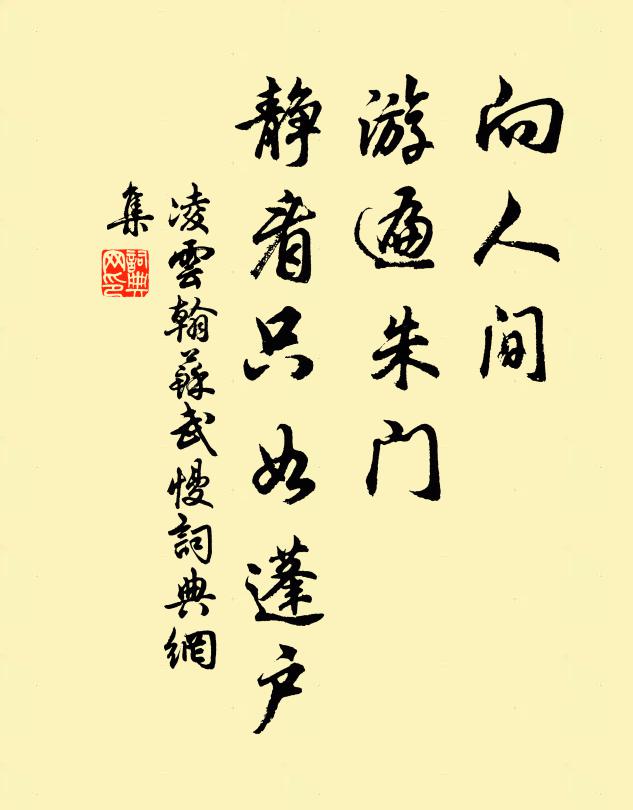 向人间
游遍朱门
静看只如蓬户
凌雲翰蘇武慢詞典網
集
詞典
网印